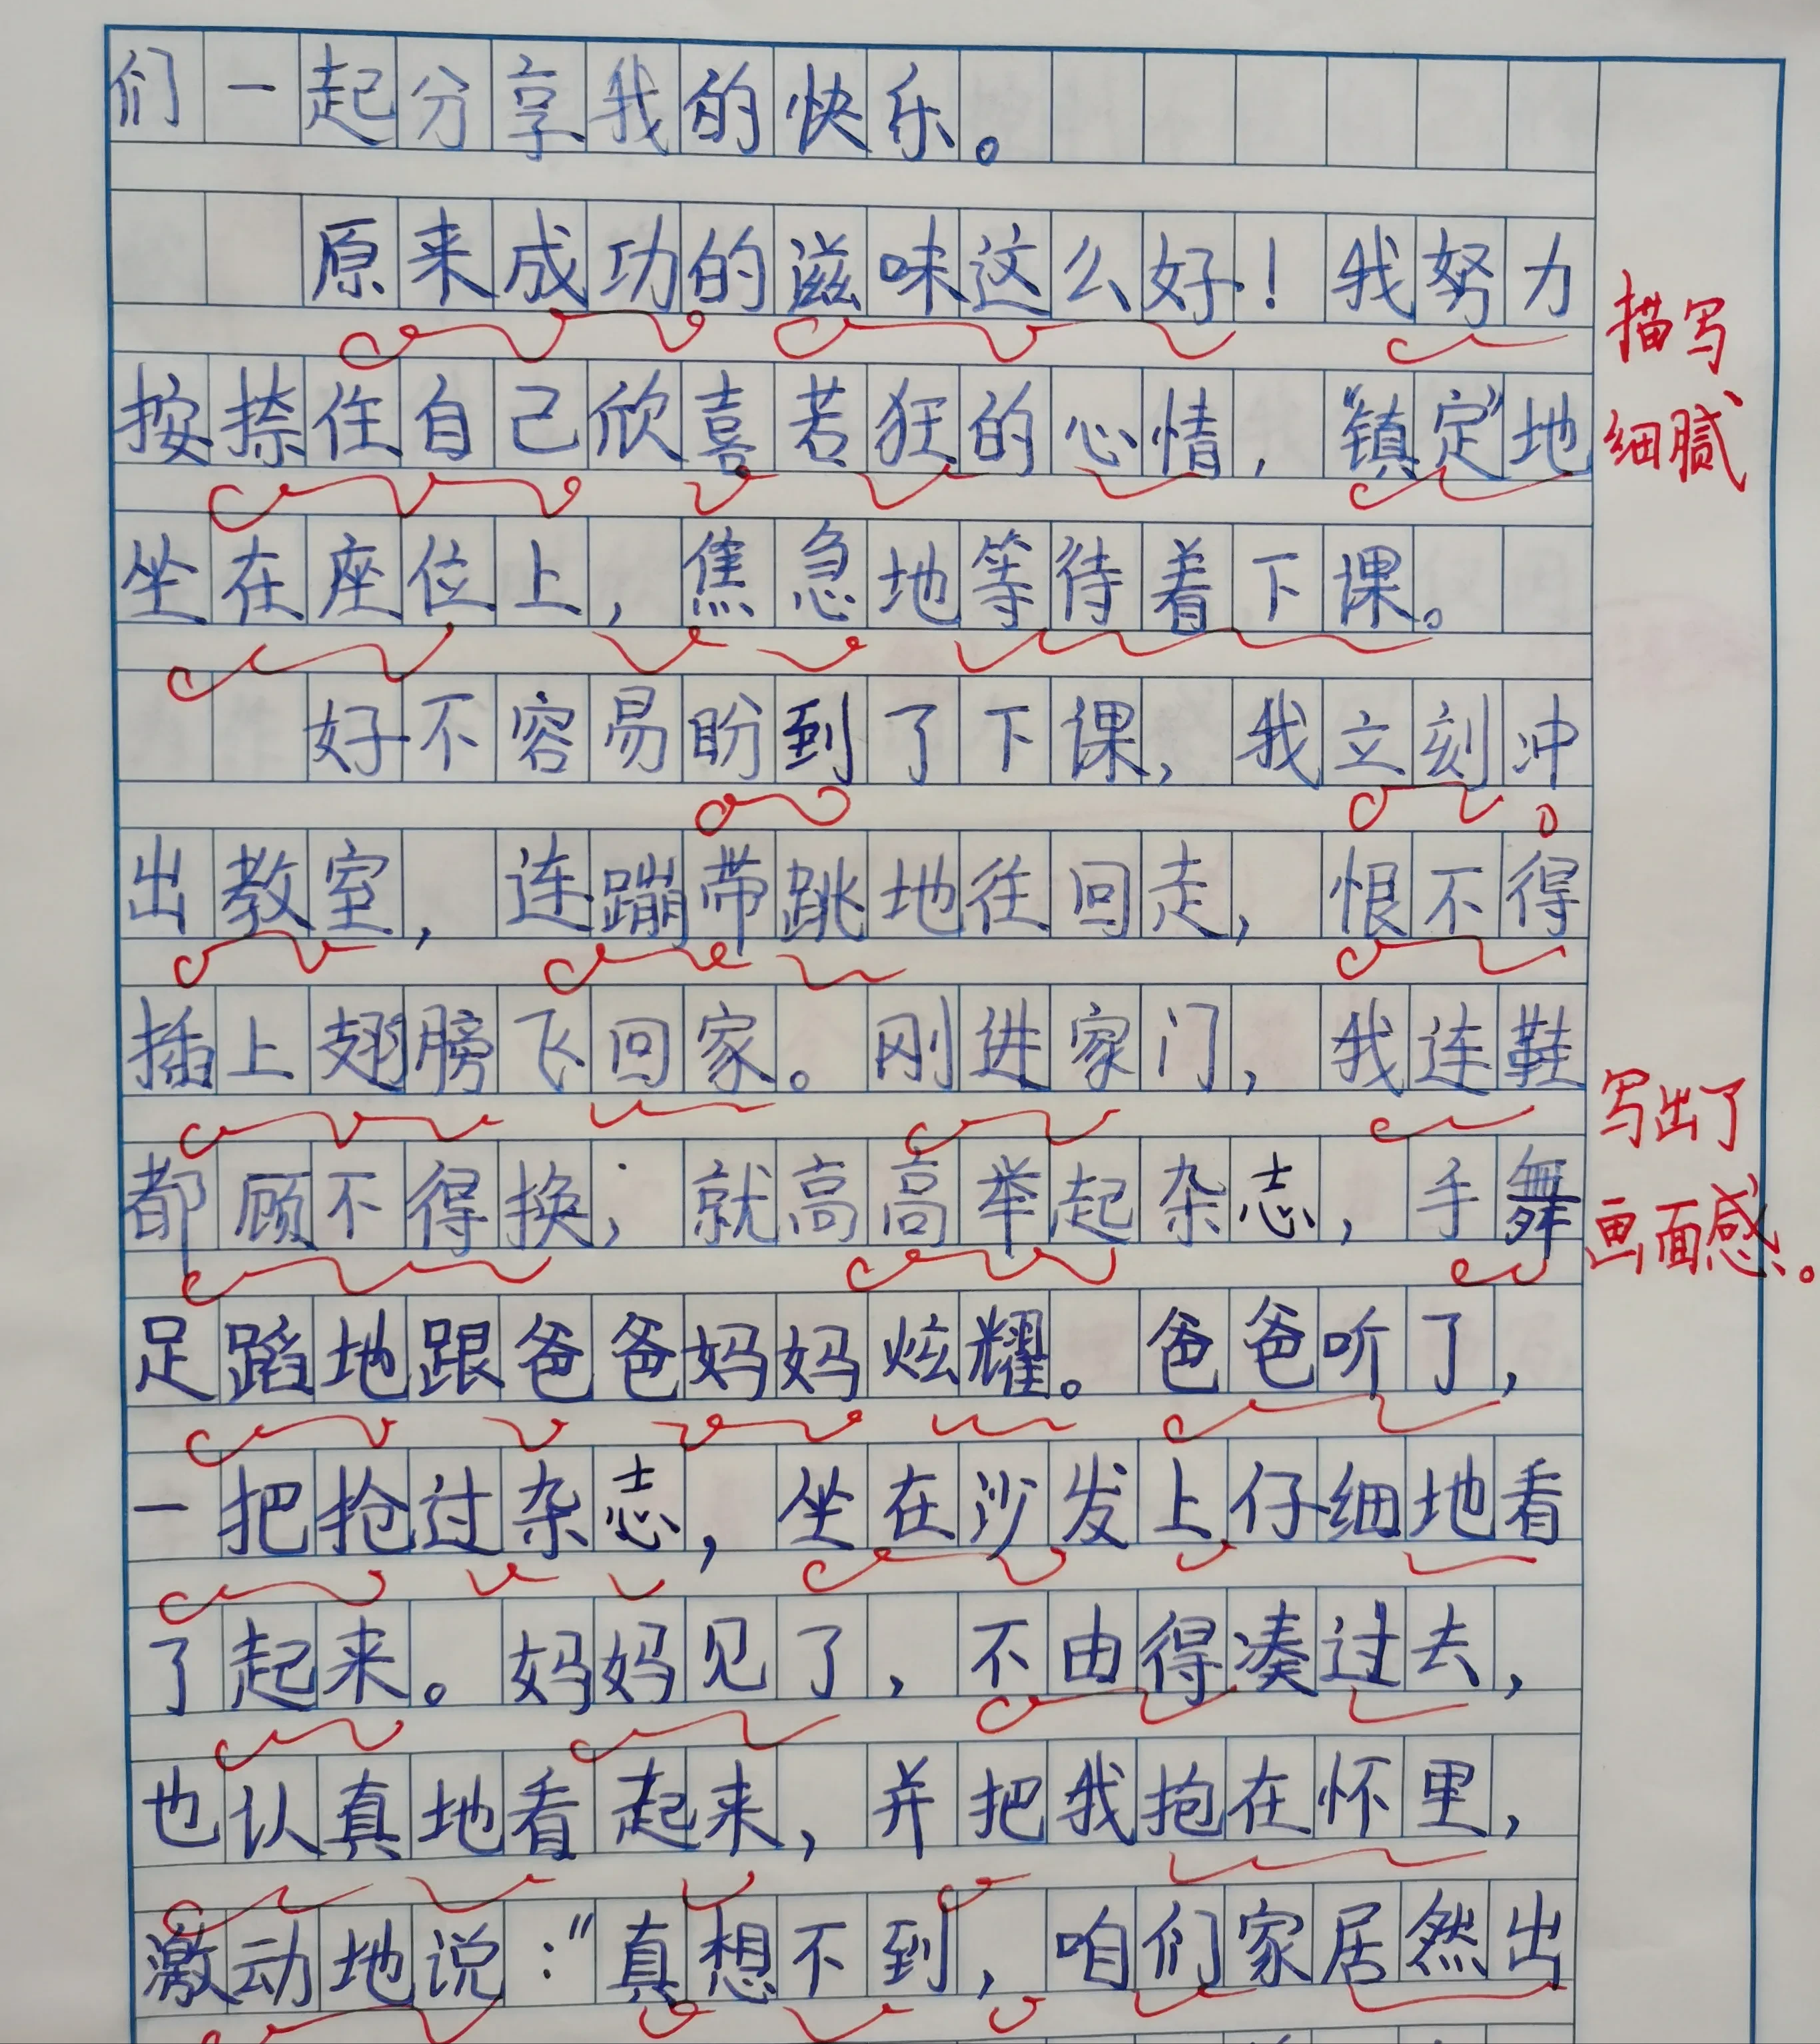 们一起分享我的快乐。
原来成功的滋味这么好！我努力
按捺住自己欣喜若狂的心情，“镇定”地
坐在座位上，焦急地等待着下课。
好不容易盼到了下课，我立刻冲
出教室，连蹦带跳地往回走，恨不得
插上翅膀飞回家。刚进家门，我连鞋
都顾不得换；就高高举起杂志，手舞
足蹈地跟爸爸妈妈炫耀。爸爸听了，
一把抢过杂志，坐在沙发上仔细地看
了起来。妈妈见了，不由得凑过去，
也认真地看起来，并把我抱在怀里，
激动地说：“真想不到，咱们家居然出
描写
细腻
写出了
画面感。